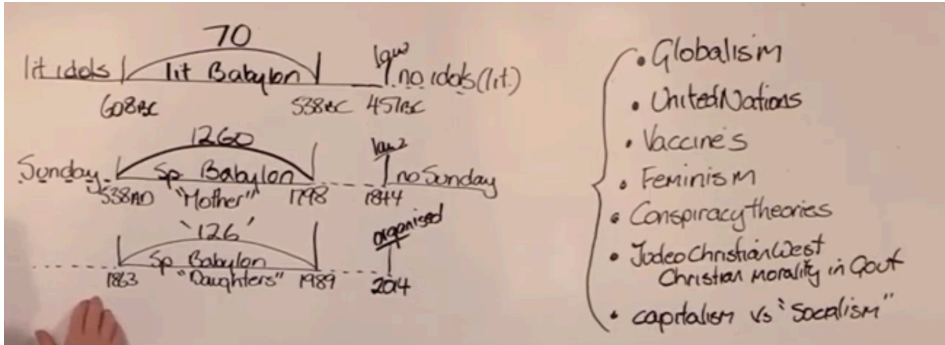 70
lit idols lit Babylon law no idols (lit.)
608BC 538BC 457BC
1260
Sunday Sp Babylon law no Sunday
538AD "Mother" 1798 1844
'126' organised
Sp Babylon
1863 "Daughters" 1989 2014
• Globalism
• United Nations
• Vaccines
• Feminism
• Conspiracy theories
• Judeo Christian West
Christian Morality in Govt
• capitalism vs "Socialism"